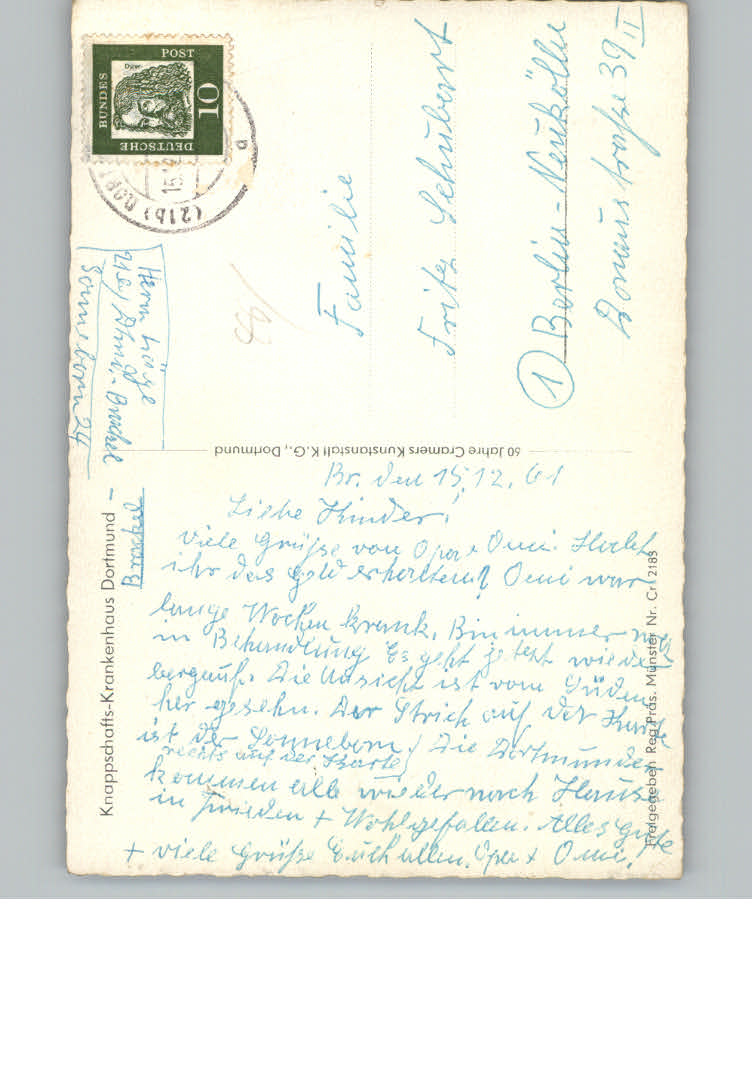 DEUTSCHE
BUNDES
POST
10
(21b) DORT
15.12
a
Herm.
21b) Dtmd.-Brackel
Sonneborn 24
Familie
Fritz Schubert
① Berlin-Neukölln
Donaustraße 39 II
50 Jahre Cramers Kunstanstalt K.G., Dortmund
Knappschafts-Krankenhaus Dortmund –
Brackel
Freigegeben Reg. Präs. Münster Nr. Cr. 2183
Br. den 15.12.61
Liebe Kinder!
Viele Grüße von Opa + Omi. Habt
ihr das Geld erhalten? Omi war
lange Wochen krank. Bin immer noch
in Behandlung Es geht jetzt wieder
bergauf. Die Ansicht ist vom Süden
her gesehn. Der Strich auf der Karte
ist der Sonneborn
rechts auf der Karte
Die Dortmunder
kommen alle wieder nach Hause
in Frieden + Wohlgefallen. Alles Gute
+ viele Grüße Euch allen. Opa + Omi!